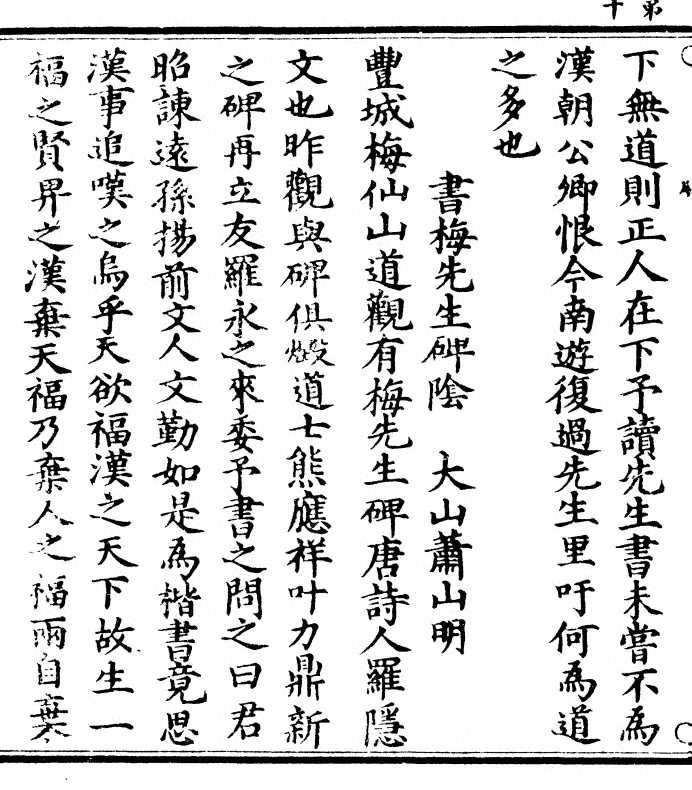 下無道則正人在下予讀先生書未嘗不為
漢朝公卿恨今南遊復過先生里吁何為道
之多也
書梅先生碑陰 大山蕭山明
豐城梅仙山道觀有梅先生碑唐詩人羅隱
文也昨觀與碑俱燬道士熊應祥叶力鼎新
之碑再立友羅永之來委予書之問之曰君
昭諫遠孫揚前文人文勤如是為楷書竟思
漢事追嘆之烏乎天欲福漢之天下故生一
福之賢畀之漢棄天福乃棄人之福兩自棄